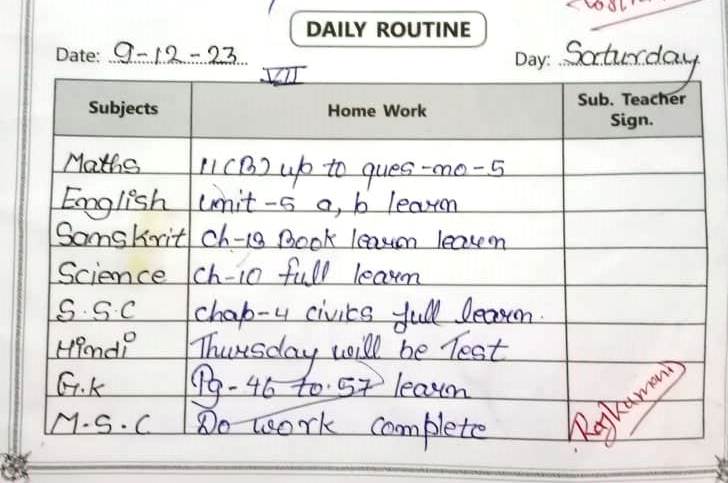 DAILY ROUTINE
Date: 9-12-23 Day: Saturday
VII
Subjects Home Work Sub. Teacher Sign.
Maths 11(B) up to ques-no-5
English unit-5 a, b learn
Sanskrit Ch-13 Book learn learn
Science Ch-10 full learn
S.S.C chap-4 civiks full learn.
Hindi Thursday will be Test
G.k Pg-46 to 57 learn
M.S.C Do work complete Rajkumari